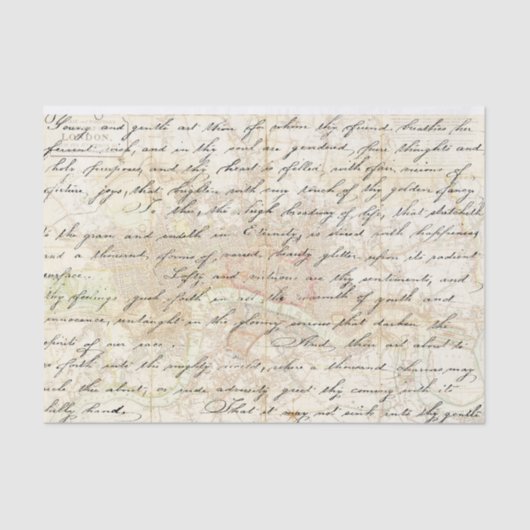 Young and gentle art thou for whom thy friend breathes her
LONDON.
fervent wish, and in thy soul are gendered, pure thoughts and
holy purposes, and thy heart is filled, with fair visions of
future joys, that brighten with every touch of thy golden fancy
To thee, the high broadway of life, that stretcheth
to the grave and endeth in Eternity, is strewed with happiness
and a thousand, forms of, varied, beauty glitter upon, its radiant
surface. Lofty and virtuous are thy sentiments, and
thy feelings gush forth in all the warmth of youth and
innocence, untaught in the gloomy visions that darken the
spirits of our race. And thou art about to
go forth into the mighty world, where a thousand charms may
thee about, or rude adversity greet thy coming with its
chilly hand. That it may not sink into thy gentle